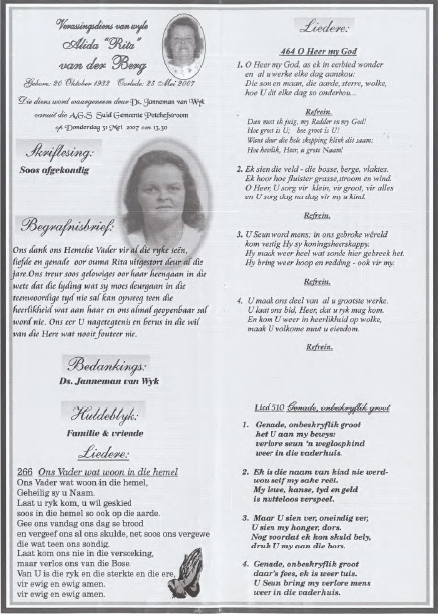 Verassingsdiens van wyle
Alida "Rita"
van der Berg
Gebore: 20 Oktober 1932 Oorlede: 25 Mei 2007
Die diens word waargeneem deur Ds. Janneman van Wyk
vanuit die A.G.S. Suid Gemeente Potchefstroom
op Donderdag 31 Mei 2007 om 13.30
Skriflesing:
Soos afgekondig
Begrafnisbrief:
Ons dank ons Hemelse Vader vir al die ryke seën,
liefde en genade oor ouma Rita uitgestort deur al die
jare. Ons treur soos gelowiges oor haar heengaan in die
wete dat die lyding wat sy moes deurgaan in die
teenwoordige tyd nie sal kan opweeg teen die
heerlikheid wat aan haar en ons almal geopenbaar sal
word nie. Ons eer U nagetegtenis en berus in die wil
van die Here wat nooit fouteer nie.
Bedankings:
Ds. Janneman van Wyk
Huldeblyk:
Familie & vriende
Liedere:
266 Ons Vader wat woon in die hemel
Ons Vader wat woon in die hemel,
Geheilig sy u Naam.
Laat u ryk kom, u wil geskied
soos in die hemel so ook op die aarde.
Gee ons vandag ons dag se brood
en vergeef ons al ons skulde, net soos ons vergewe
die wat teen ons sondig.
Laat kom ons nie in die verseeking,
maar verlos ons van die Bose.
Van U is die ryk en die sterkte en die ere,
vir ewig en ewig amen.
vir ewig en ewig amen.
Liedere:
464 O Heer my God
1. O Heer my God, as ek in eerbied wonder
en al u werke elke dag aanskou:
Die son en maan, die aarde, sterre, wolke,
hoe U dit elke dag so onderhou...
Refrein.
Dan moet ek juig, my Redder en my God!
Hoe groot is U; hoe groot is U!
Want deur die hele skepping klink dit saam:
Hoe heerlik, Heer, u grote Naam!
2. Ek sien die veld - die bosse, berge, vlaktes.
Ek hoor hoe fluister grasse, stroom en wind.
O Heer, U sorg vir klein, vir groot, vir alles
en U sorg dag na dag vir my u kind.
Refrein.
3. U Seun word mens; in ons gebroke wêreld
kom vestig Hy sy koningsheerskappy.
Hy maak weer heel wat sonde hier gebreek het.
Hy bring weer hoop en redding - ook vir my.
Refrein.
4. U maak ons deel van al u grootste werke.
U laat ons bid, Heer, dat u ryk mag kom.
En kom U weer in heerlikheid op wolke,
maak U volkome nuut u eiendom.
Refrein.
Lied 510 Genade, onbeskryflik groot
1. Genade, onbeskryflik groot
het U aan my bewys:
verlore seun 'n wegloopkind
weer in die vaderhuis.
2. Ek is die naam van kind nie werd-
wou self my sake reël.
My lewe, kanse, tyd en geld
is nutteloos verspeel.
3. Maar U sien ver, oneindig ver,
U sien my honger, dors.
Nog voordat ek kon skuld bely,
druk U my aan die bors.
4. Genade, onbeskryflik groot
daar's fees, ek is weer tuis.
U Seun bring my verlore mens
weer in die vaderhuis.